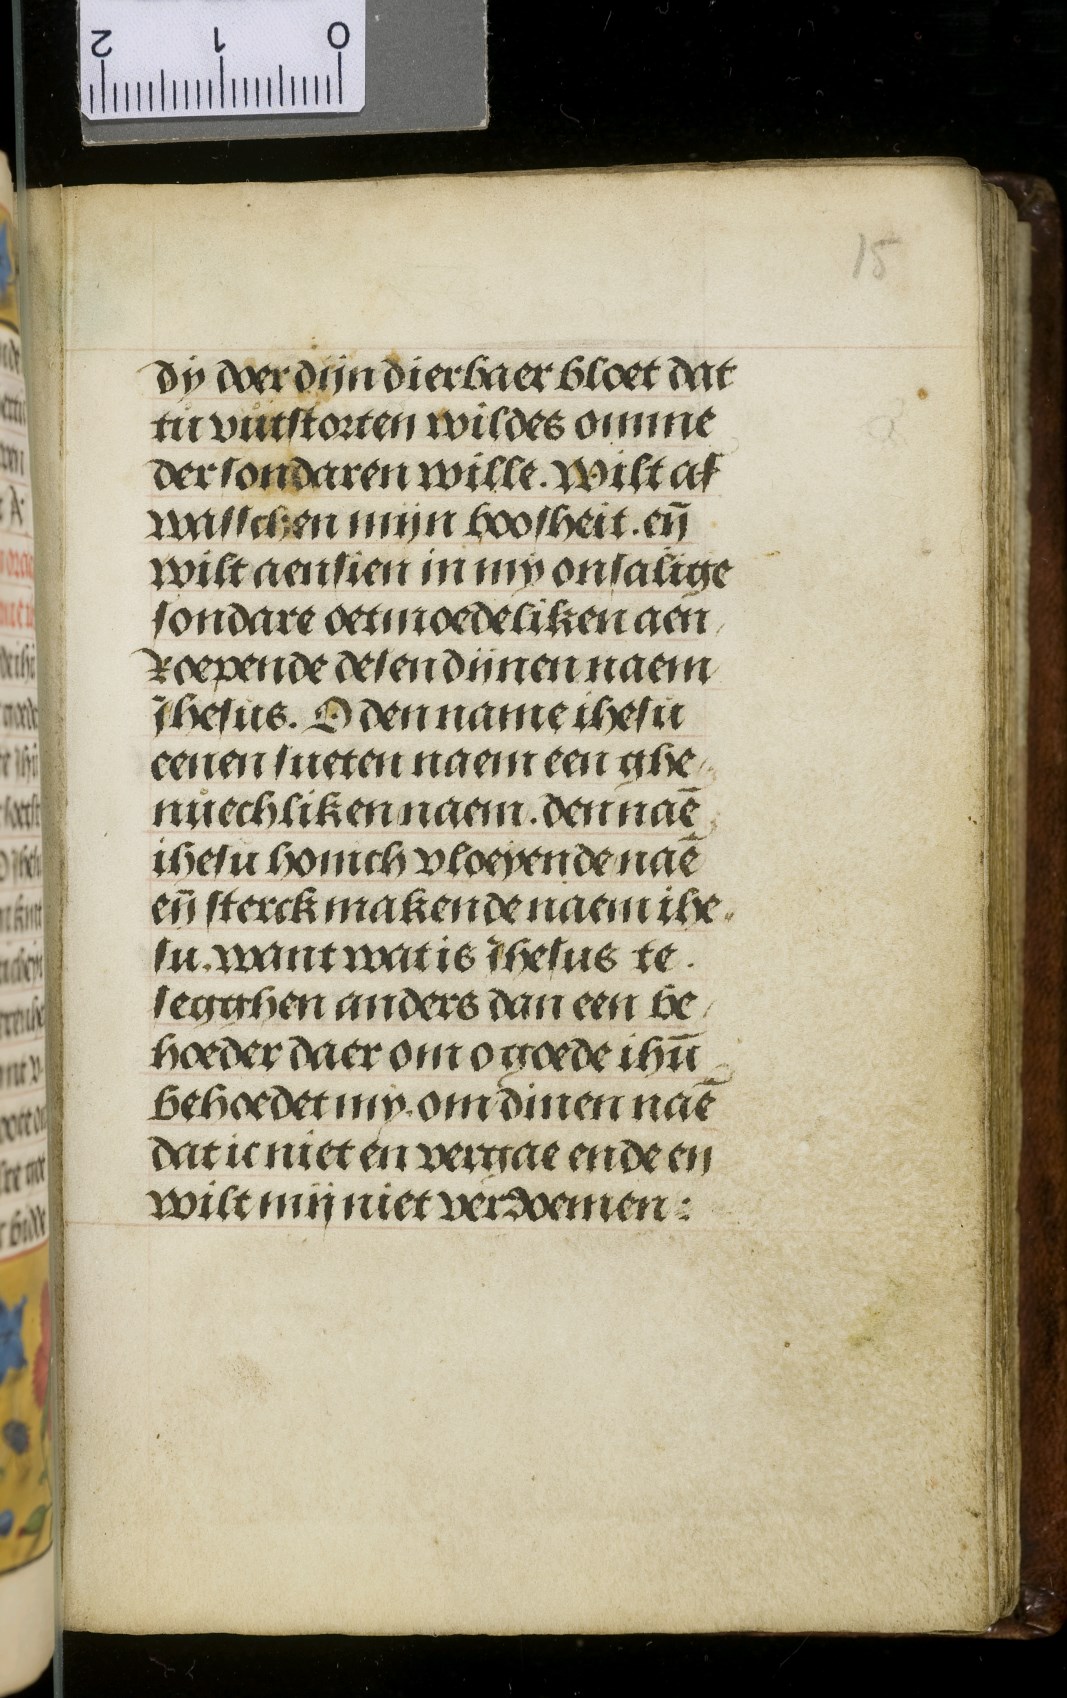 15
dÿ doer dijn dierbaer bloet dat
tu vutstorten wildes omme
der sondaren wille. Wilt af
wasschen mijn boosheit. eñ
wilt aensien in mÿ onsalige
sondare oetmoedeliken aen
Roepende desen dijnen naem
ihesus. O den name ihesu
eenen sueten naem een ghe
nuechliken naem. den naē
ihesu honich vloeyende naē
eñ sterck makende naem ihe
su. want wat is ihesus te
segghen anders dan een be
hoeder daer om o goede ihū
behoedet mÿ. om dinen naē
dat ic niet en vergae ende en
wilt mij niet verdoemen :
2 1 0